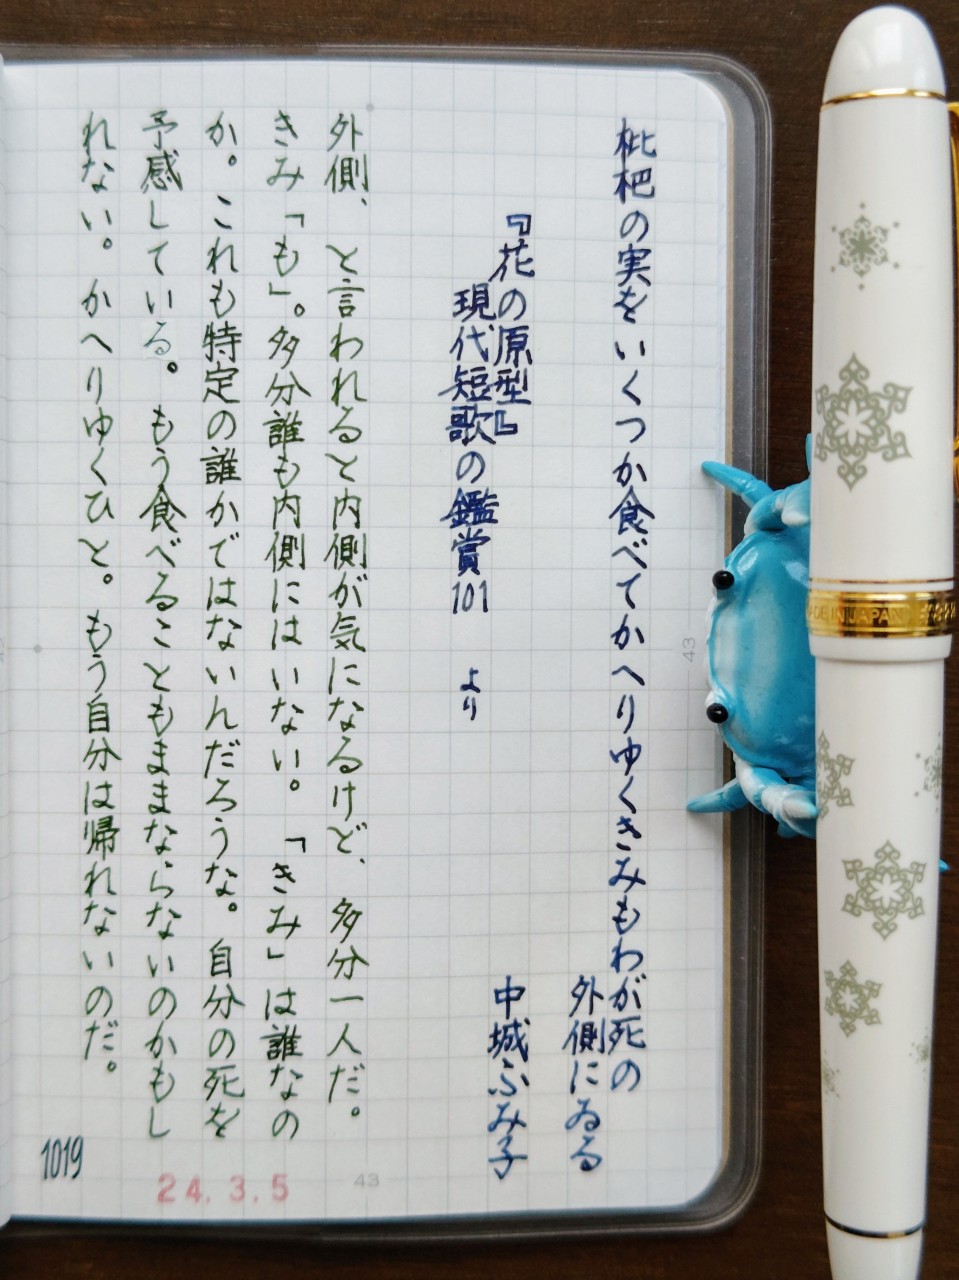 枇杷の実をいくつか食べてかへりゆくきみもわが死の
外側にゐる
『花の原型』
中城ふみ子
現代短歌の鑑賞101 より
外側、と言われると内側が気になるけど、多分一人だ。
きみ「も」。多分誰も内側にはいない。「きみ」は誰なの
か。これも特定の誰かではないんだろうな。自分の死を
予感している。もう食べることもままならないのかもし
れない。かへりゆくひと。もう自分は帰れないのだ。
1019
24.3.5
43
43
MADE IN JAPAN